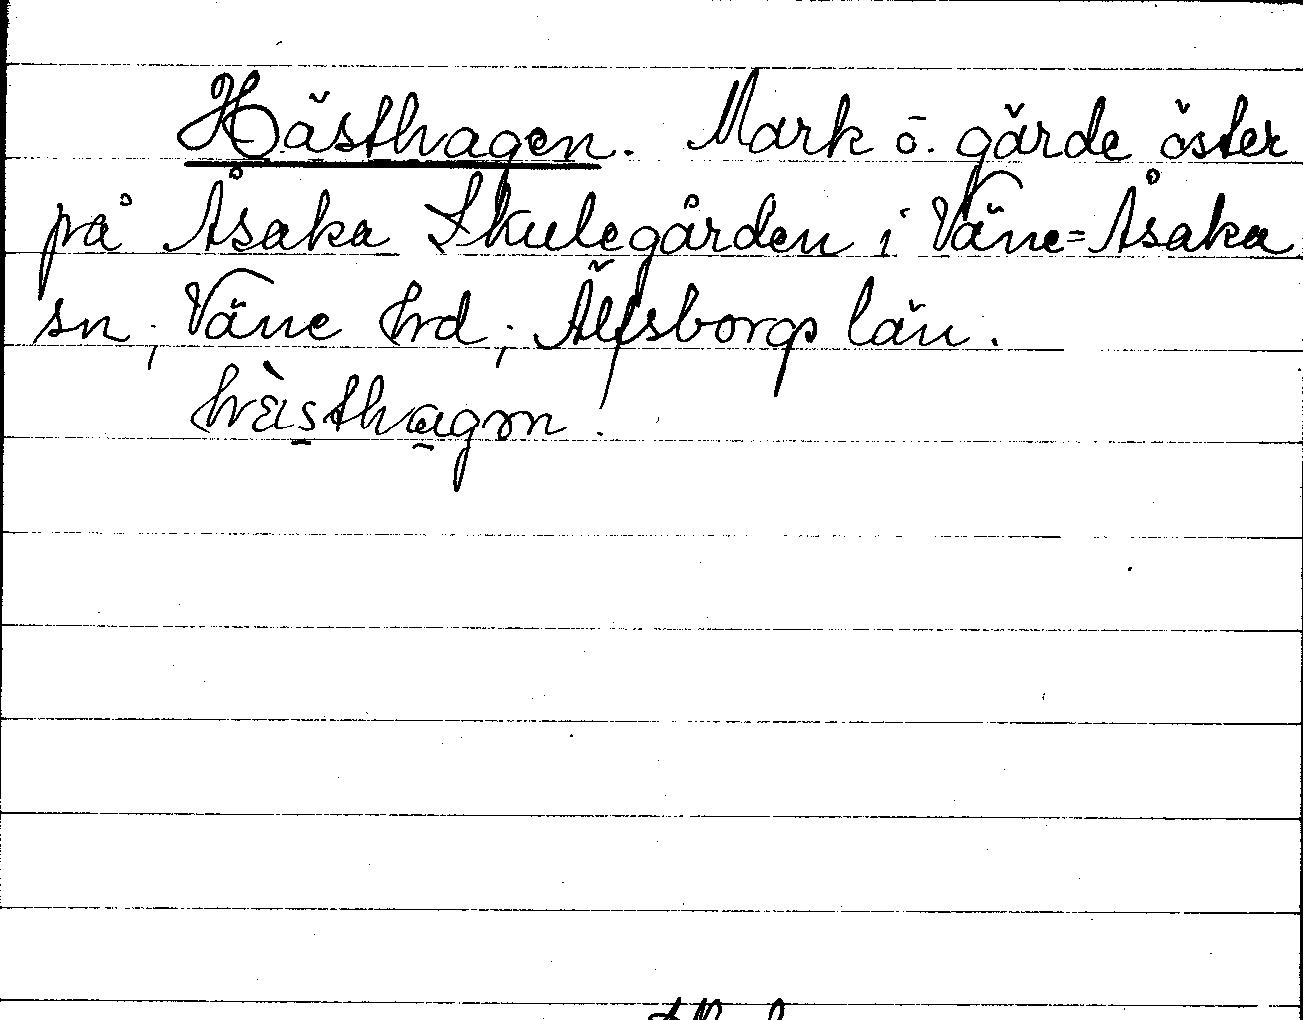 Hästhagen. Mark o. gärde öster
på Åsaka Skulegården i Väne=Åsaka
sn, Väne hrd, Älfsborgs län.